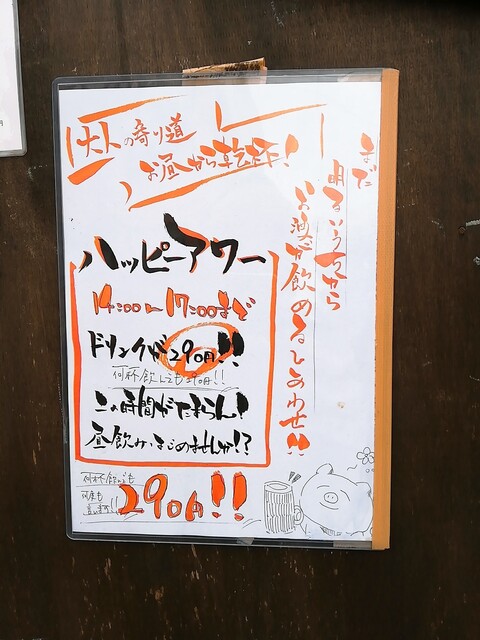 大人の寄り道
お昼から乾杯!
まだ
明るいうちから
お酒が飲めるしあわせ!!
ハッピーアワー
14:00〜17:00まで
ドリンクが290円!!
何杯飲んでも290円!!
この時間がたまらん!
昼飲みはじめませんか!?
何杯飲んでも
何度も
言います!!
290円!!